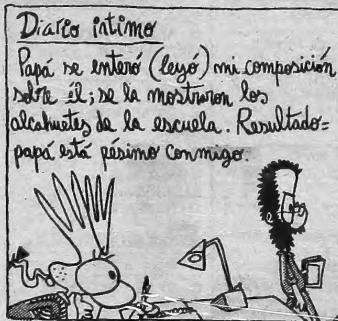 Diario íntimo
Papá se enteró (leyó) mi composición
sobre él; se la mostraron los
alcahuetes de la escuela. Resultado=
papá está pésimo conmigo.